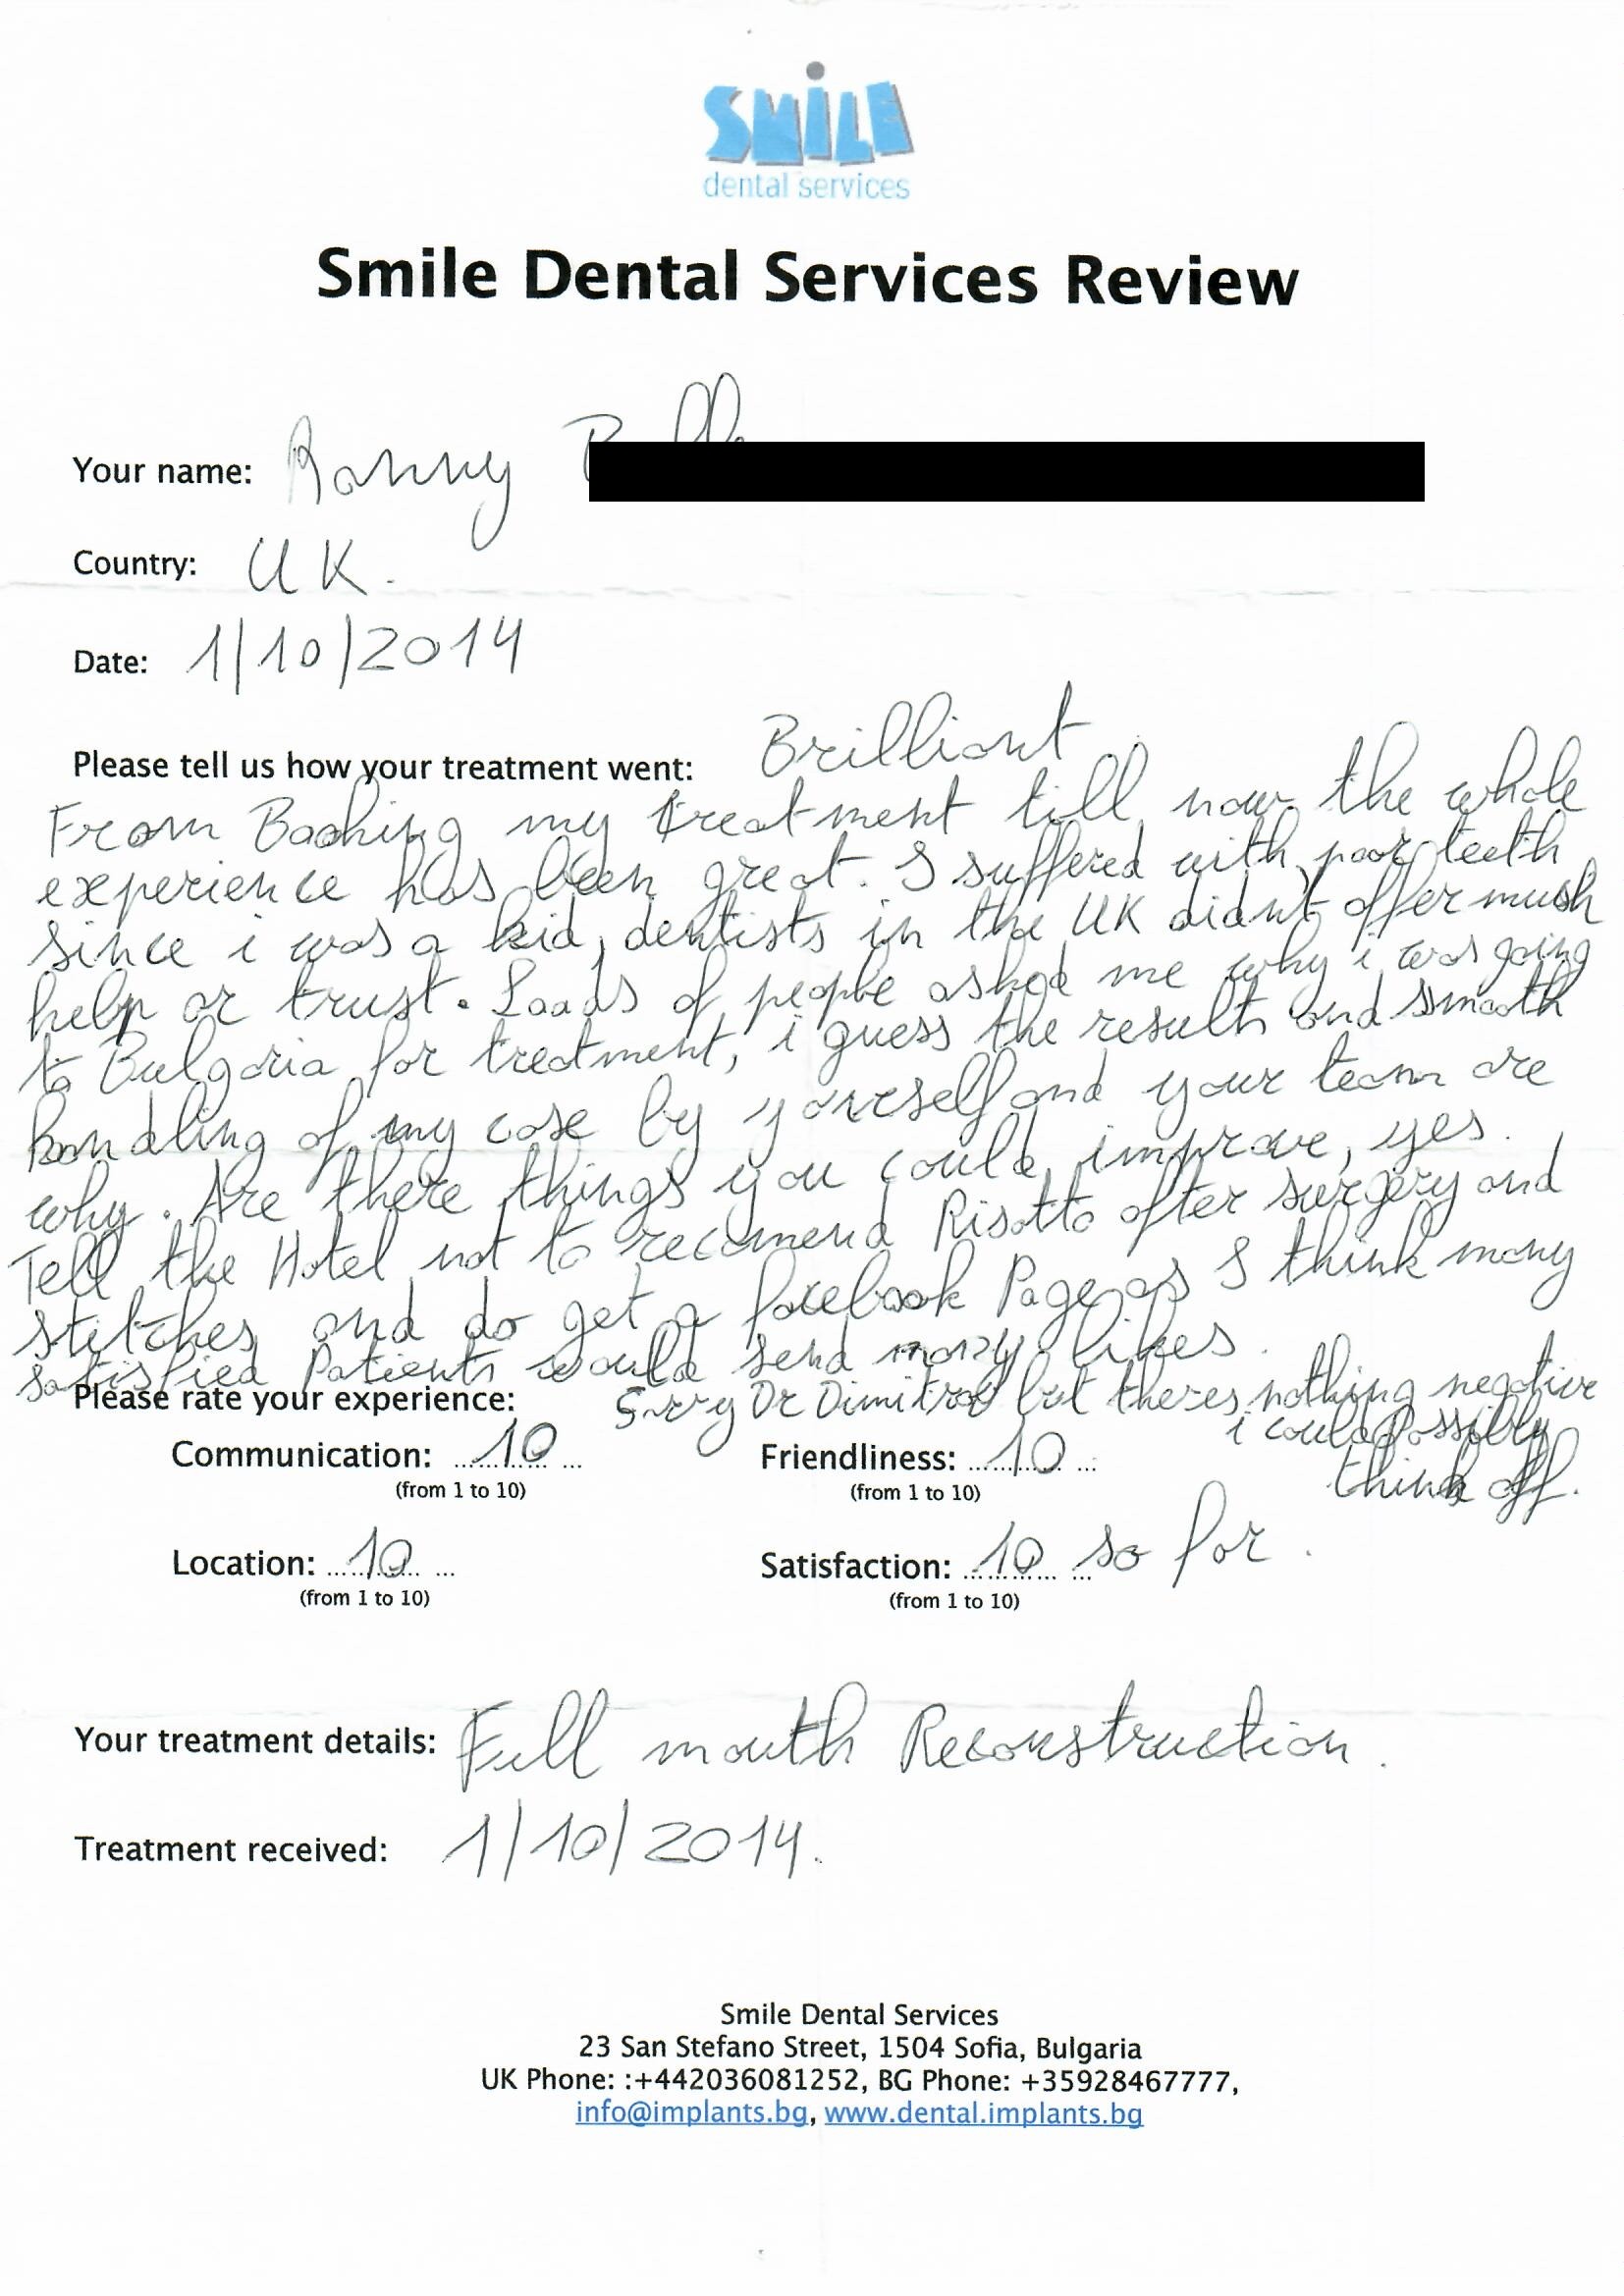 SMILE
dental services
Smile Dental Services Review
Your name: Ronny
Country: UK.
Date: 1/10/2014
Please tell us how your treatment went: Brilliant
From Booking my treatment till now the whole
experience has been great. I suffered with poor teeth
since i was a kid, dentists in the UK didn't offer mush
help or trust. Loads of people asked me why i was going
to Bulgaria for treatment, i guess the results and smooth
handling of my case by yourself and your team are
why. Are there things you could improve, yes.
Tell the Hotel not to recomend Risotto after surgery and
stitches and do get a facebook Page as I think many
satisfied Patients would send many likes.
Sorry Dr Dimitrov but theres nothing negative
i could possibly
think off.
Please rate your experience:
Communication: 10 Friendliness: 10
(from 1 to 10) (from 1 to 10)
Location: 10 Satisfaction: 10 so far.
(from 1 to 10) (from 1 to 10)
Your treatment details: Full mouth Reconstruction.
Treatment received: 1/10/2014.
Smile Dental Services
23 San Stefano Street, 1504 Sofia, Bulgaria
UK Phone: :+442036081252, BG Phone: +35928467777,
info@implants.bg, www.dental.implants.bg